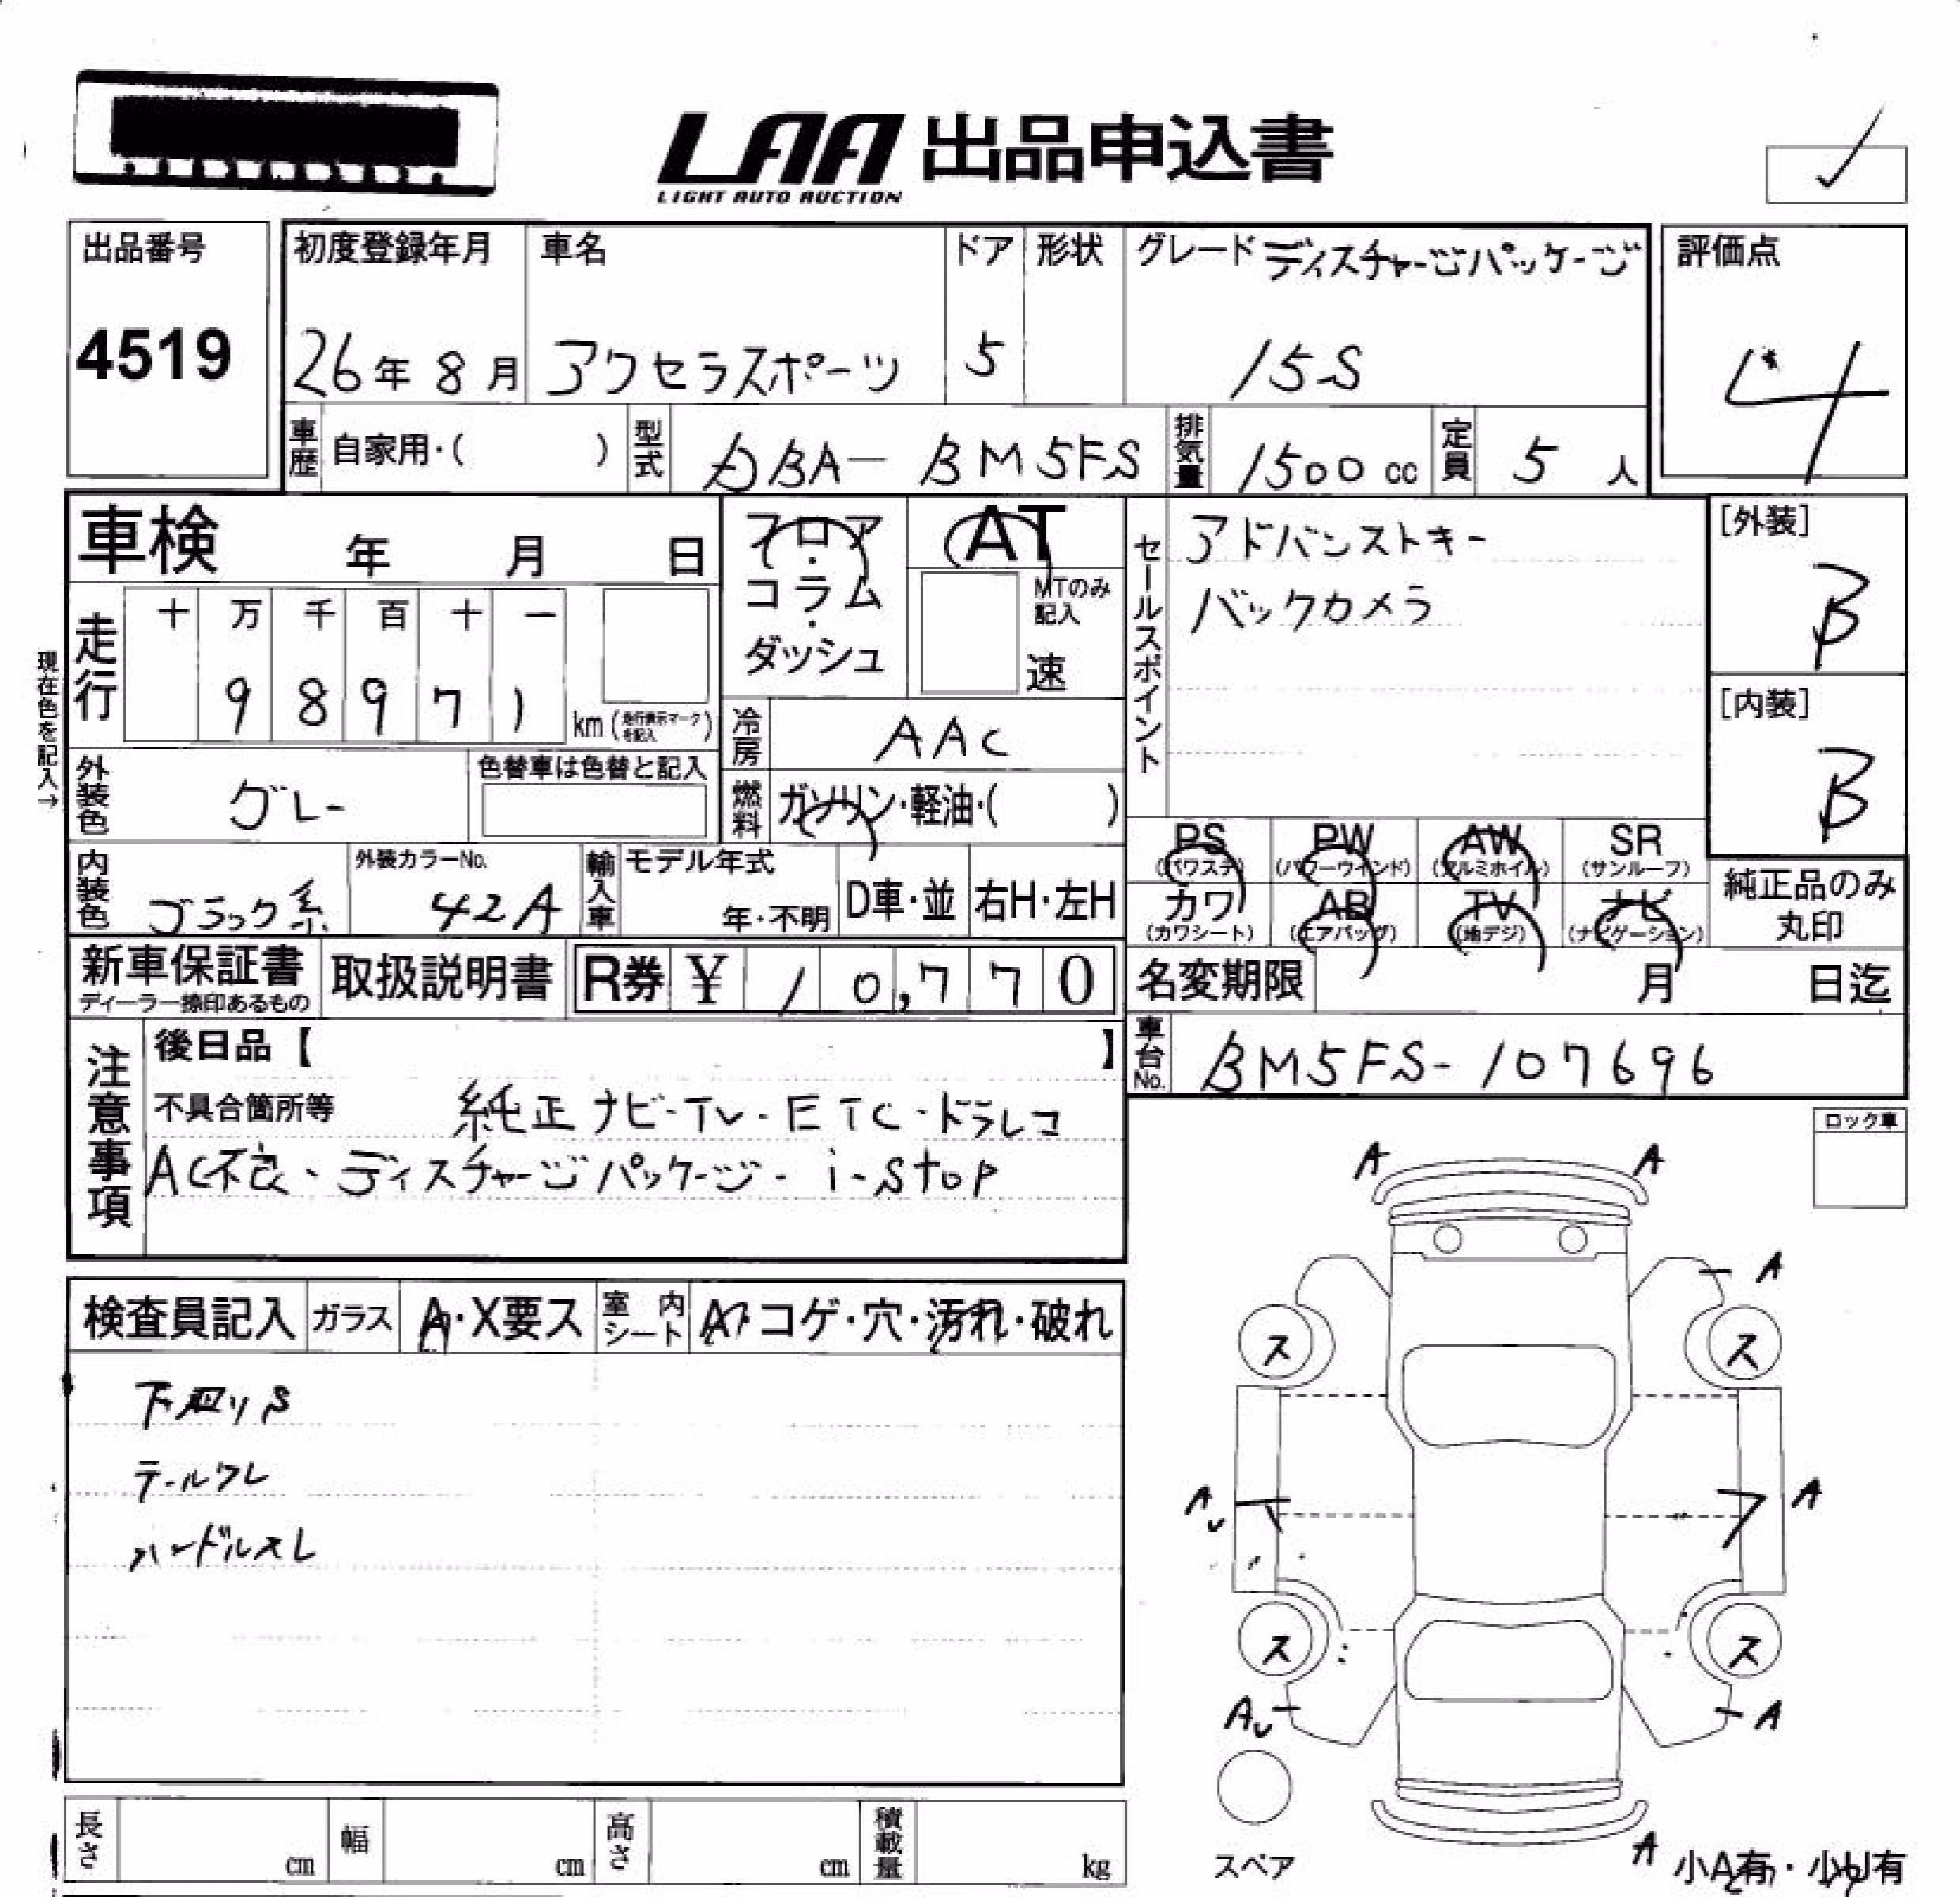 LAA 出品申込書
LIGHT AUTO AUCTION
出品番号
4519
初度登録年月
26年 8月
車名
アクセラスポーツ
ドア
5
形状
グレード ディスチャージパッケージ
15S
評価点
4
車歴 自家用・( )
型式 DBA-BM5FS
排気量 1500 cc
定員 5 人
車検 年 月 日
フロア・コラム・ダッシュ
AT
MTのみ記入
速
セールスポイント
アドバンストキー
バックカメラ
[外装]
B
[内装]
B
現在色を記入→
走行
十 万 千 百 十 一
9 8 9 7 1 km (走行表示マークを記入)
冷房 AAC
外装色 グレー
色替車は色替と記入
燃料 ガソリン・軽油・( )
PS (パワステ) PW (パワーウインド) AW (アルミホイル) SR (サンルーフ)
カワ (カワシート) AB (エアバッグ) TV (地デジ) ナビ (ナビゲーション)
純正品のみ丸印
内装色 ブラック系
外装カラーNo. 42A
輸入車 モデル年式 年・不明 D車・並 右H・左H
新車保証書 ディーラー捺印あるもの
取扱説明書
R券 ¥ 10,770
名変期限 月 日迄
車台No. BM5FS-107696
注意事項
後日品【 】
不具合箇所等 純正ナビ・TV・ETC・ドラレコ
AC不良、ディスチャージパッケージ・i-stop
ロック車
A A
A
ス ス
検査員記入 ガラス A・X要ス 室内シート A・コゲ・穴・汚れ・破れ
下廻りS
テールワレ
ハンドルスレ
A A
ス ス
A A
スペア
A 小A有・小U有
長さ cm 幅 cm 高さ cm 積載量 kg